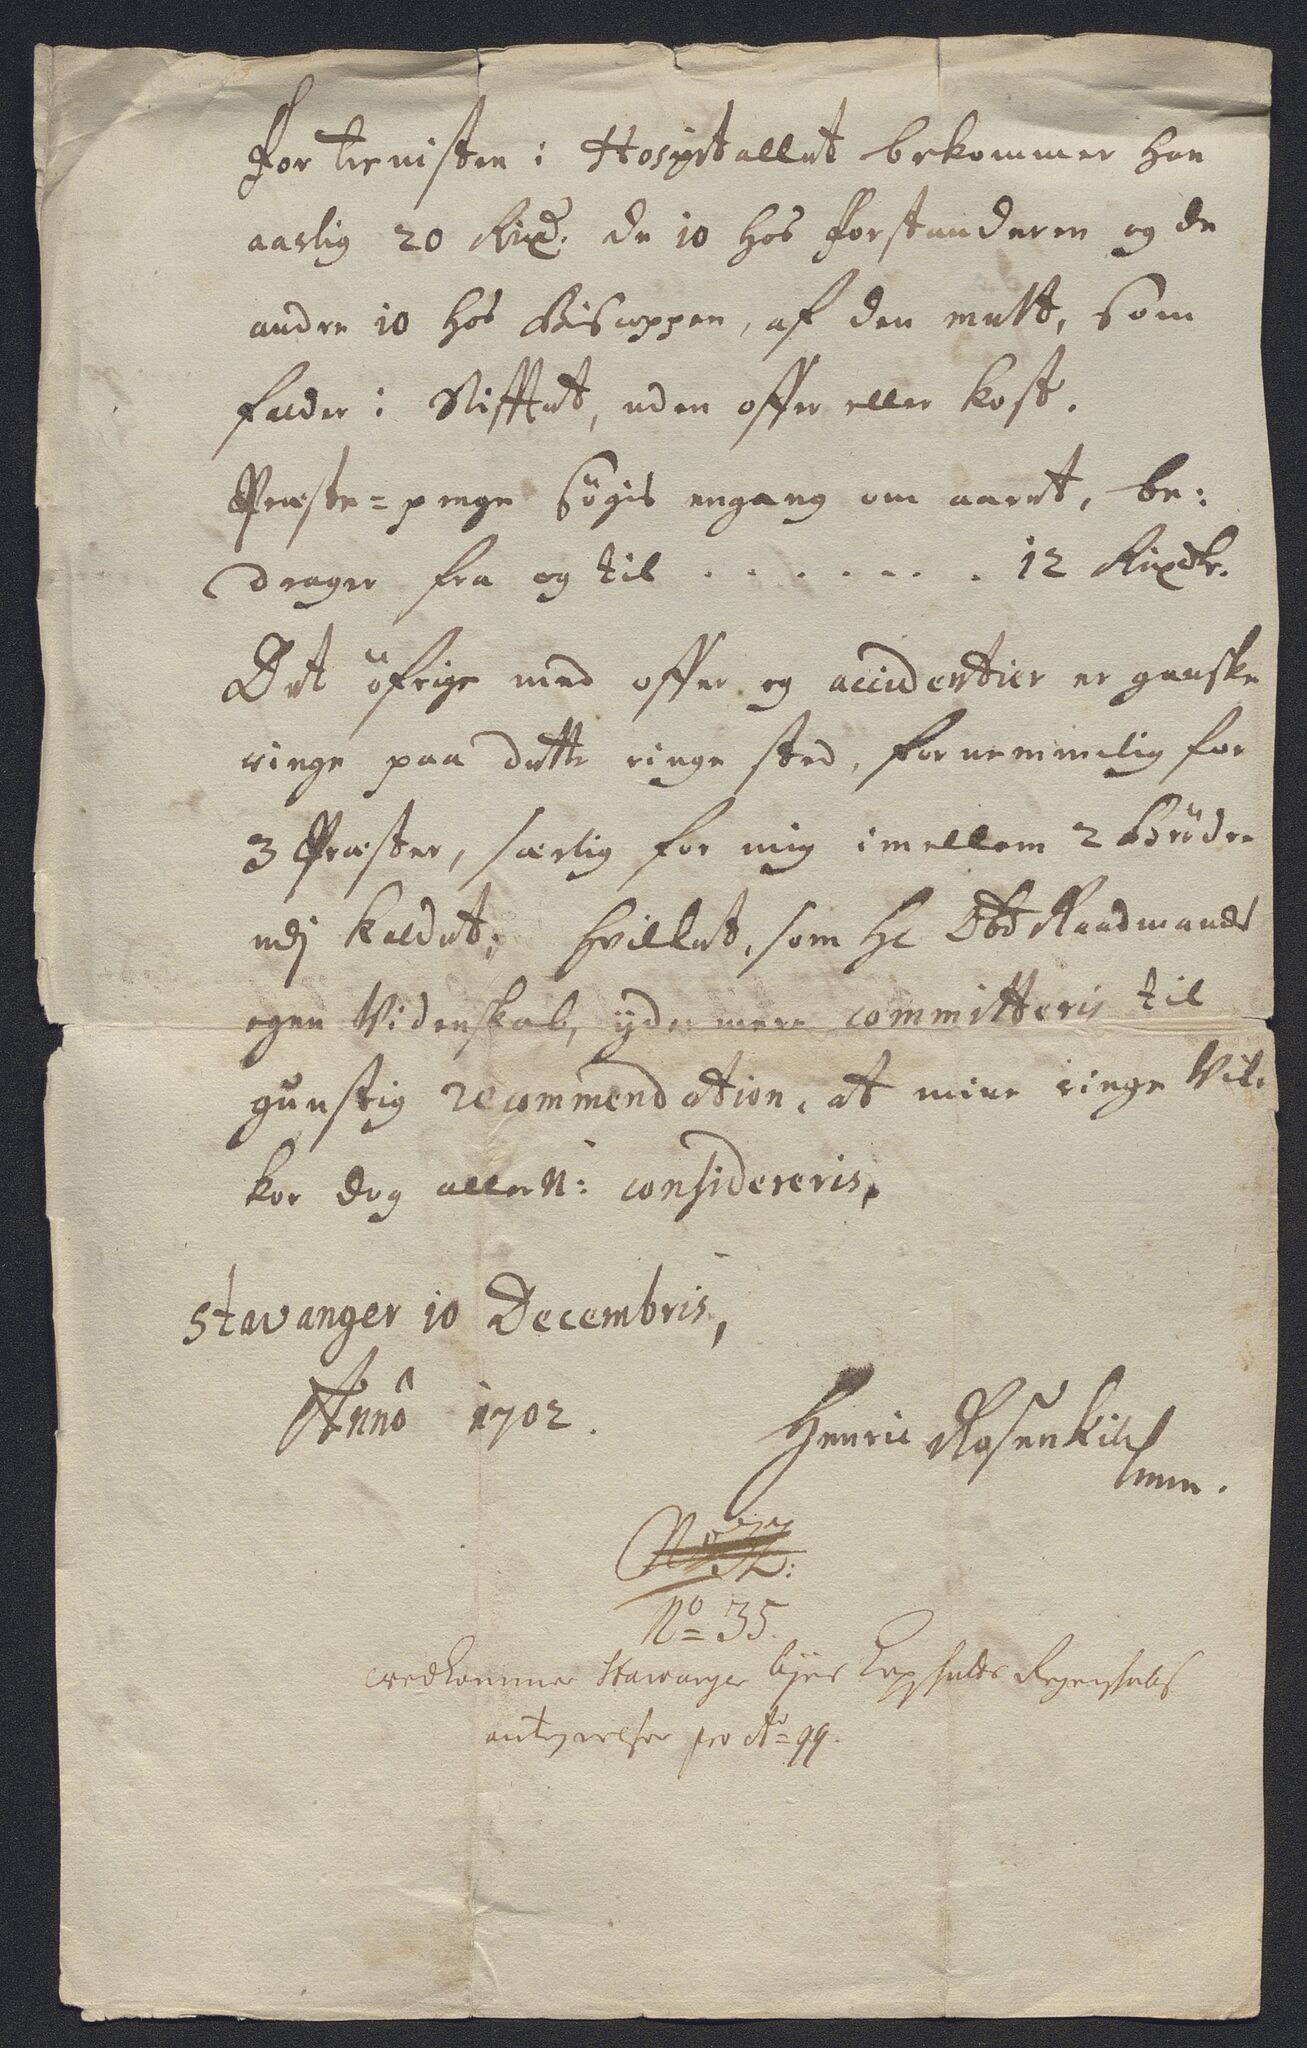 For tienisten i Hospitallet bekommer han
aarlig 20 Rixd. de 10 hos forstanderen og de
andre 10 hos Biscoppen, af den mult, som
falder i Stifftet, uden offer eller kost.
Præste-penge søgis engang om aaret, be:
drager fra og til . . . . . . . 12 Rixdlr.
Det öfrige med offer og accidentier er ganske
ringe paa dette ringe sted, fornemmelig for
3 Præster, særlig for mig imellem 2 Brödre
udj kaldet; hvilket, som Hr Raadmands
egen Videnskab, ydermere committeris til
gunstig recommendation, at mine ringe Vil-
kor dog allern: considereris,
Stavanger 10 Decembris,
Annô 1702.
Henric Rosenkilde
mm.
No 35.
vedkommer Stavanger byes Kopskatts Regenskabs
antegnelser pro Ao 99.